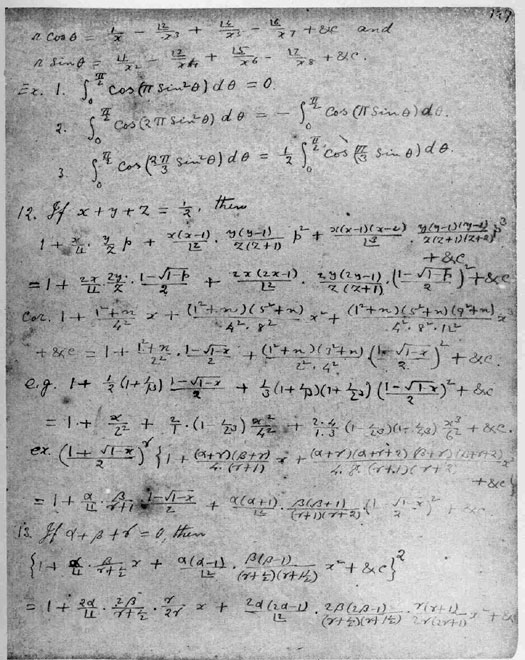 r cos θ = 1/x − |2/x³ + |4/x⁵ − |6/x⁷ + &c and
r sin θ = |1/x² − |3/x⁴ + |5/x⁶ − |7/x⁸ + &c.
Ex. 1. ∫₀^{π/2} cos(π sin²θ) dθ = 0.
2. ∫₀^{π/2} cos(2π sin²θ) dθ = − ∫₀^{π/2} cos(π sin θ) dθ.
3. ∫₀^{π/2} cos(2π/3 sin²θ) dθ = ½ ∫₀^{π/2} cos(π/3 sin θ) dθ.
12. If x + y + z = ½, then
1 + x/|1 · y/z p + x(x−1)/|2 · y(y−1)/z(z+1) p² + x(x−1)(x−2)/|3 · y(y−1)(y−2)/z(z+1)(z+2) p³
+ &c
= 1 + 2x/|1 · 2y/z · (1−√(1−p))/2 + 2x(2x−1)/|2 · 2y(2y−1)/z(z+1) · ((1−√(1−p))/2)² + &c
Cor. 1 + (1²+n)/4² x + (1²+n)(5²+n)/4²·8² x² + (1²+n)(5²+n)(9²+n)/4²·8²·12² x³
+ &c = 1 + (1²+n)/2² · (1−√(1−x))/2 + (1²+n)(3²+n)/2²·4² ((1−√(1−x))/2)² + &c.
e.g. 1 + ½(1+1/|3) (1−√(1−x))/2 + ⅓(1+1/|3)(1+1/|23) ((1−√(1−x))/2)² + &c
= 1 + x/2² + 2/1 · (1−1/|23) x²/4² + 2·4/1·3 (1−1/|23)(1−1/|43) x³/6² + &c.
ex. ((1+√(1−x))/2)^r {1 + (α+r)(β+r)/4·(r+1) x + (α+r)(α+r+2)(β+r)(β+r+2)/4·8·(r+1)(r+2) x²
+ &c}
= 1 + α/|1 · β/(r+1) · (1−√(1−x))/2 + α(α+1)/|2 · β(β+1)/(r+1)(r+2) ((1−√(1−x))/2)² + &c
13. If α + β + r = 0, then
{1 + α/|1 · β/(r+½) x + α(α−1)/|2 · β(β−1)/(r+½)(r+1½) x² + &c}²
= 1 + 2α/|1 · 2β/(r+½) · r/2r x + 2α(2α−1)/|2 · 2β(2β−1)/(r+½)(r+1½) · r(r+1)/2r(2r+1) x² + &c